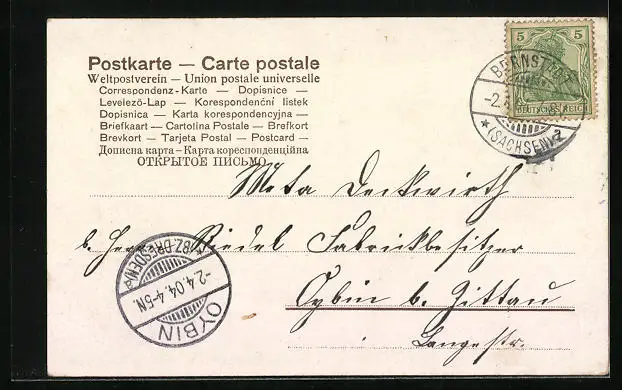 Postkarte — Carte postale
Weltpostverein — Union postale universelle
Correspondenz-Karte — Dopisnice —
Levelező-Lap — Korespondenční listek
Dopisnica — Karta korespondencyjna —
Briefkaart — Cartolina Postale — Brefkort
Brevkort — Tarjeta Postal — Postcard —
Дописна карта — Карта кореспонденційна
ОТКРЫТОЕ ПИСЬМО
5 5
DEUTSCHES REICH
BERNSTADT
-2.
* (SACHSEN)
Meta Deckwirth
b. Herrn Riedel Fabrickbesitzer
Oybin b. Zittau
Langestr.
* (BZ. DRESDEN)
-2.4.04. 4-5N.
OYBIN